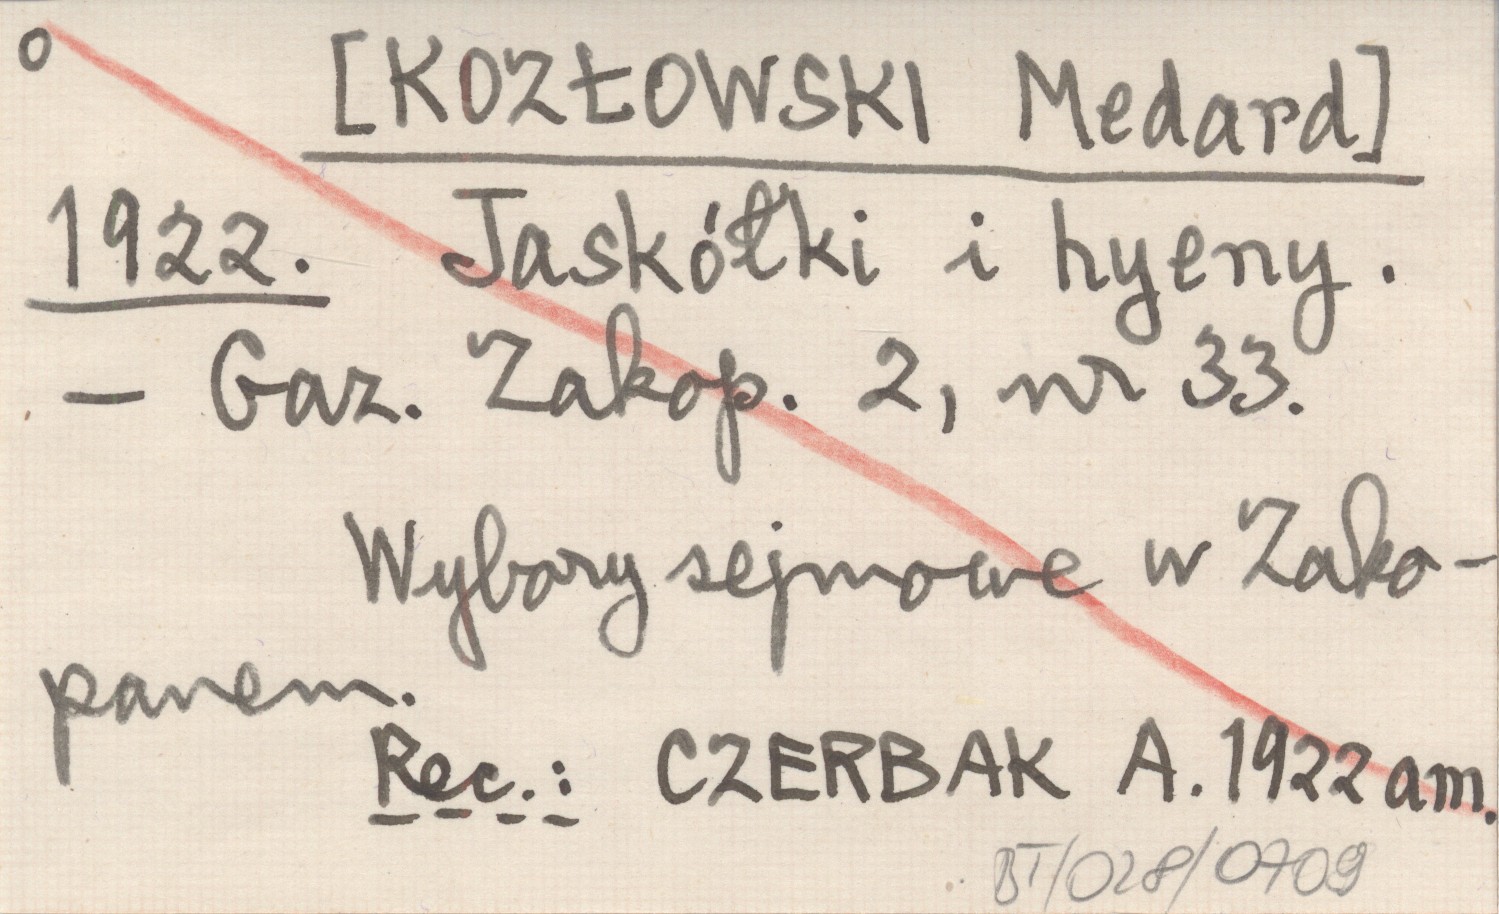 o [KOZŁOWSKI Medard]
1922. Jaskółki i hyeny.
— Gaz. Zakop. 2, nr 33.
Wybory sejmowe w Zako-
panem.
Rec.: CZERBAK A. 1922 am.
BT/028/0709